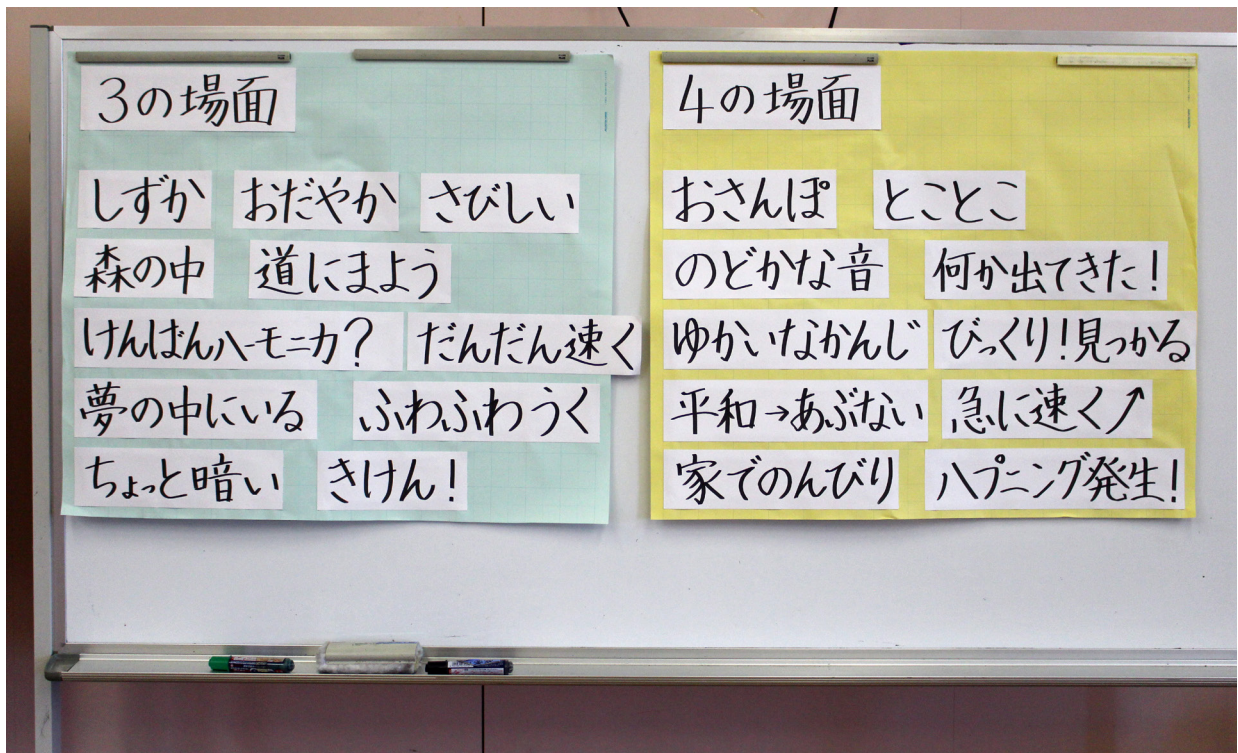 3の場面
しずか おだやか さびしい
森の中 道にまよう
けんばんハーモニカ? だんだん速く
夢の中にいる ふわふわうく
ちょっと暗い きけん!
4の場面
おさんぽ とことこ
のどかな音 何か出てきた!
ゆかいなかんじ びっくり!見つかる
平和→あぶない 急に速く↗
家でのんびり ハプニング発生!